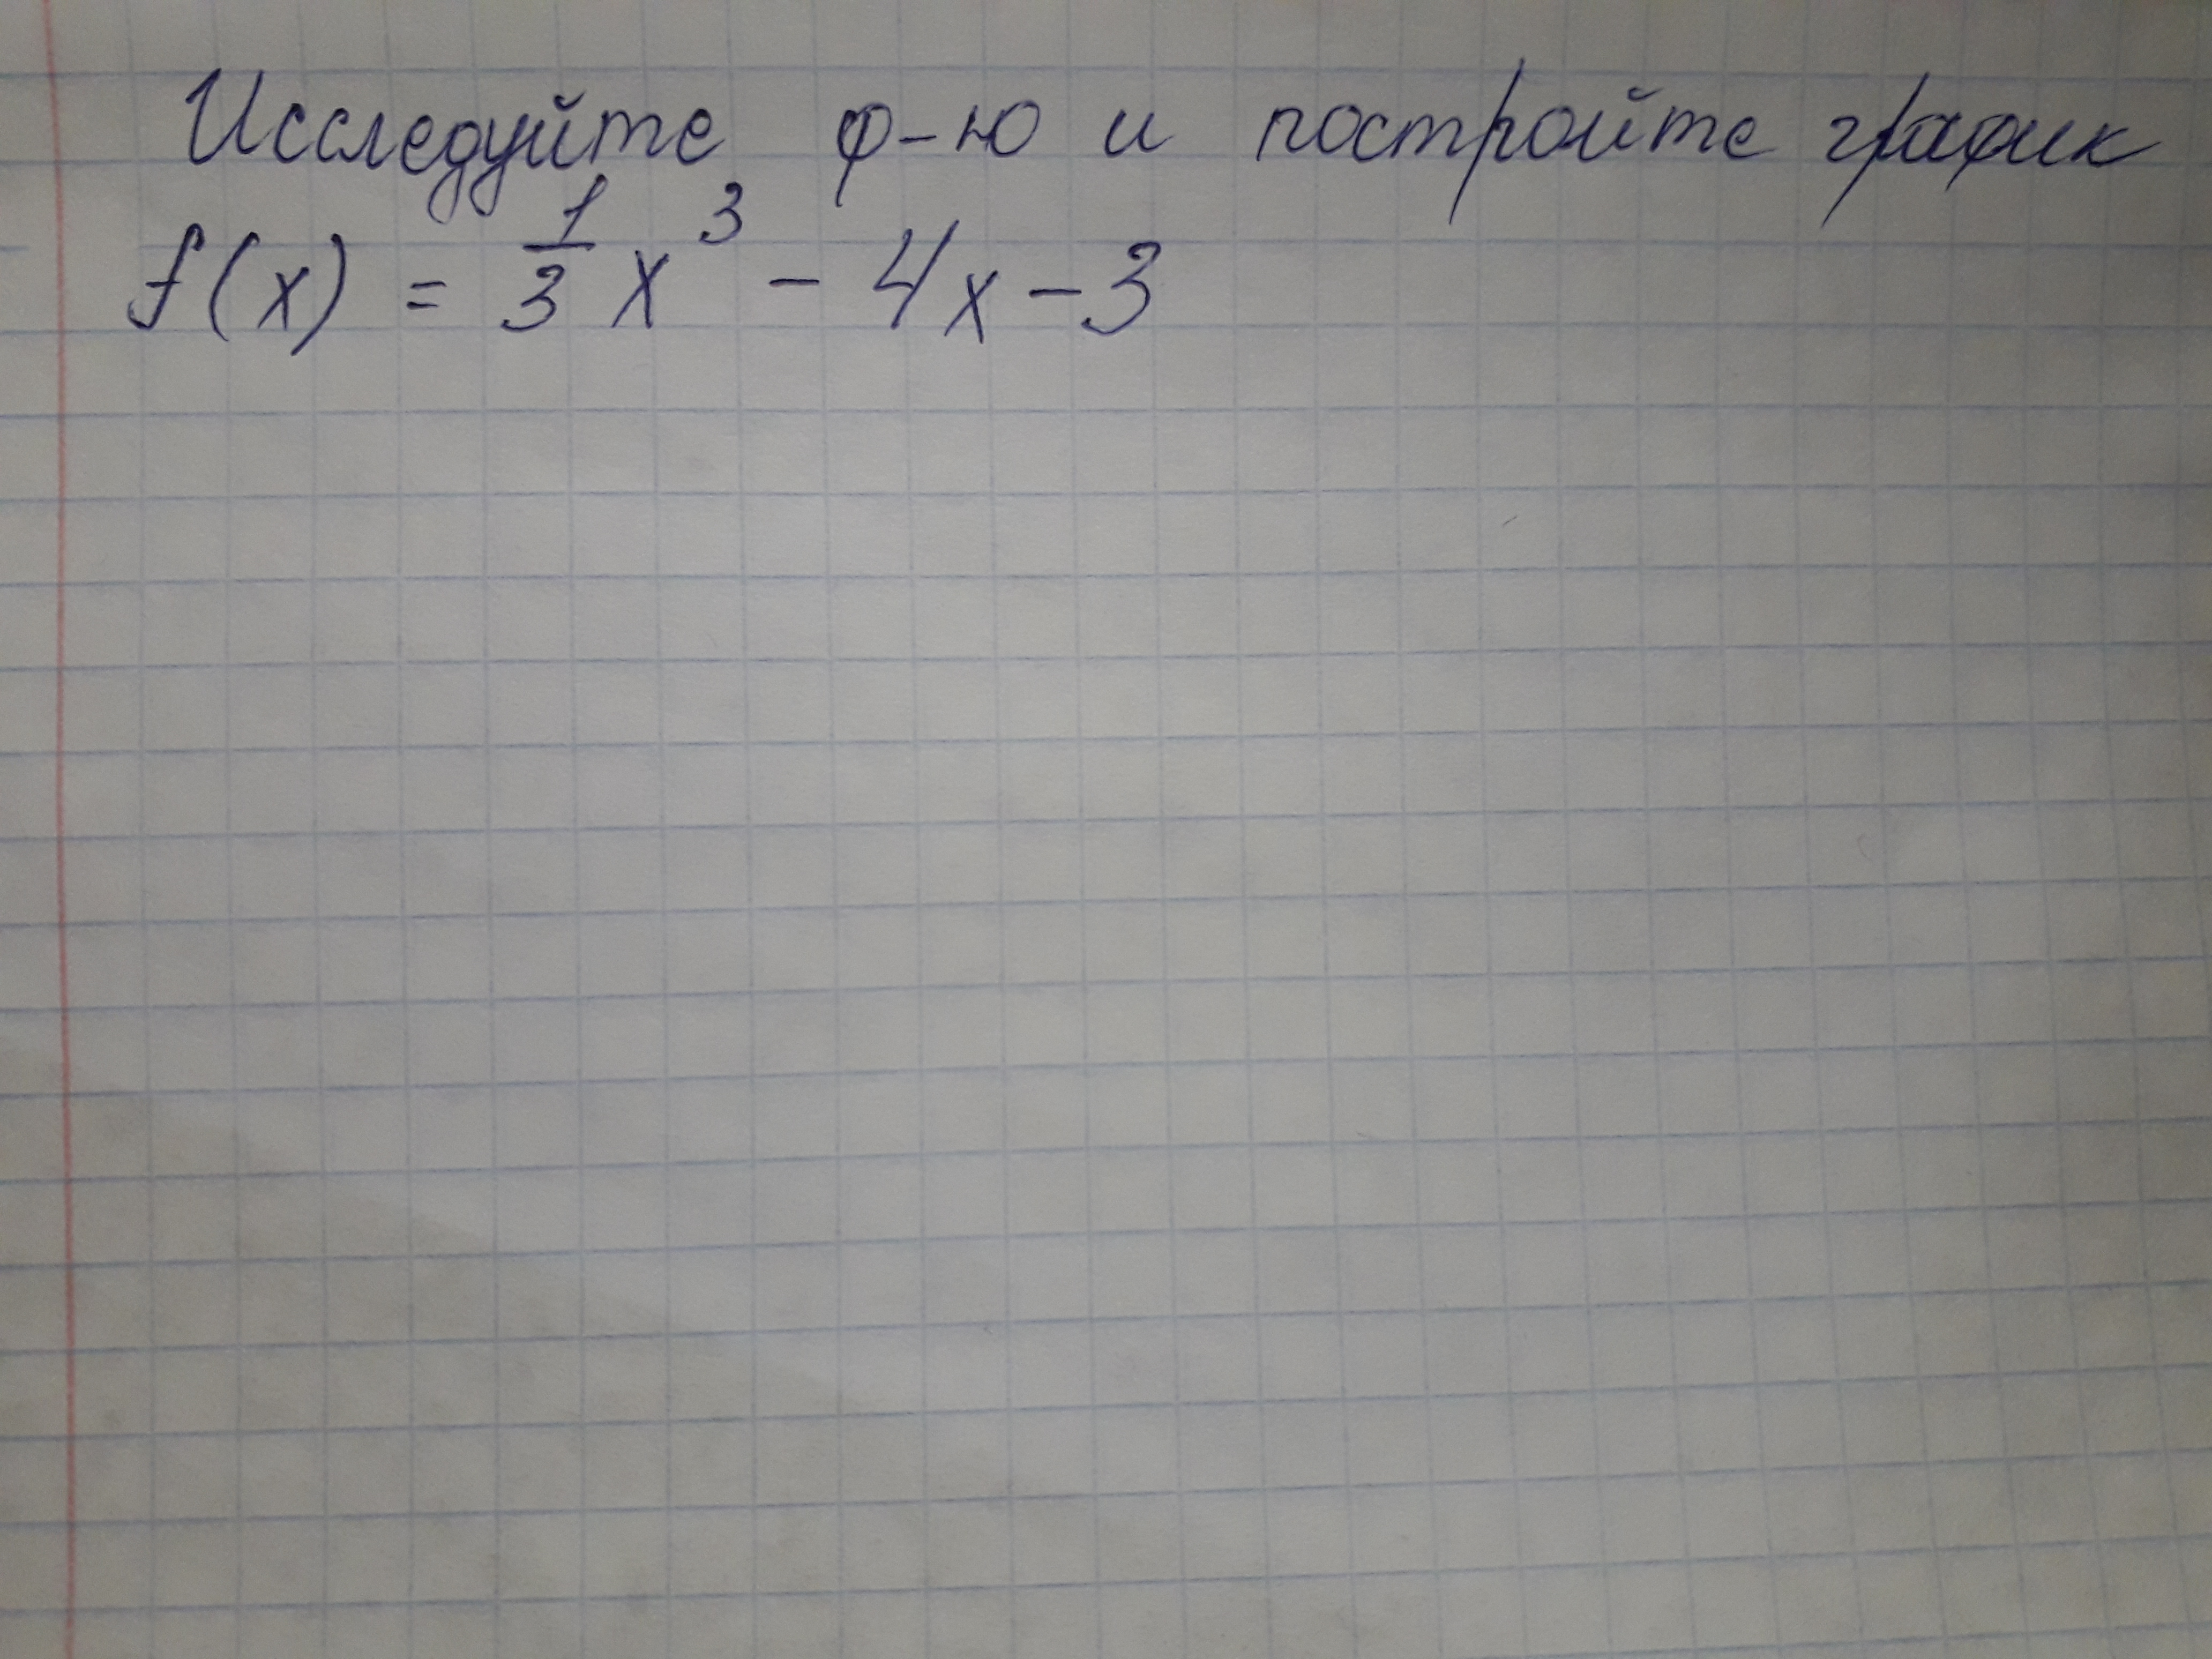 Исследуйте ф-ю и постройте график
f(x) = 1/3 x³ - 4x - 3